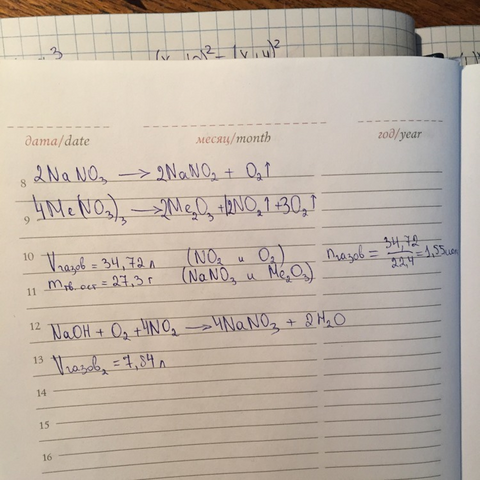 дата/date месяц/month год/year
8 2NaNO₃ → 2NaNO₂ + O₂↑
9 4Me(NO₃)₃ → 2Me₂O₃ + 12NO₂↑ + 3O₂↑
10 Vгазов = 34,72 л (NO₂ и O₂) nгазов = 34,72/22,4 = 1,55 моль
11 mтв.ост = 27,3 г (NaNO₃ и Me₂O₃)
12 NaOH + O₂ + 4NO₂ → 4NaNO₃ + 2H₂O
13 Vгазов₂ = 7,84 л
14
15
16